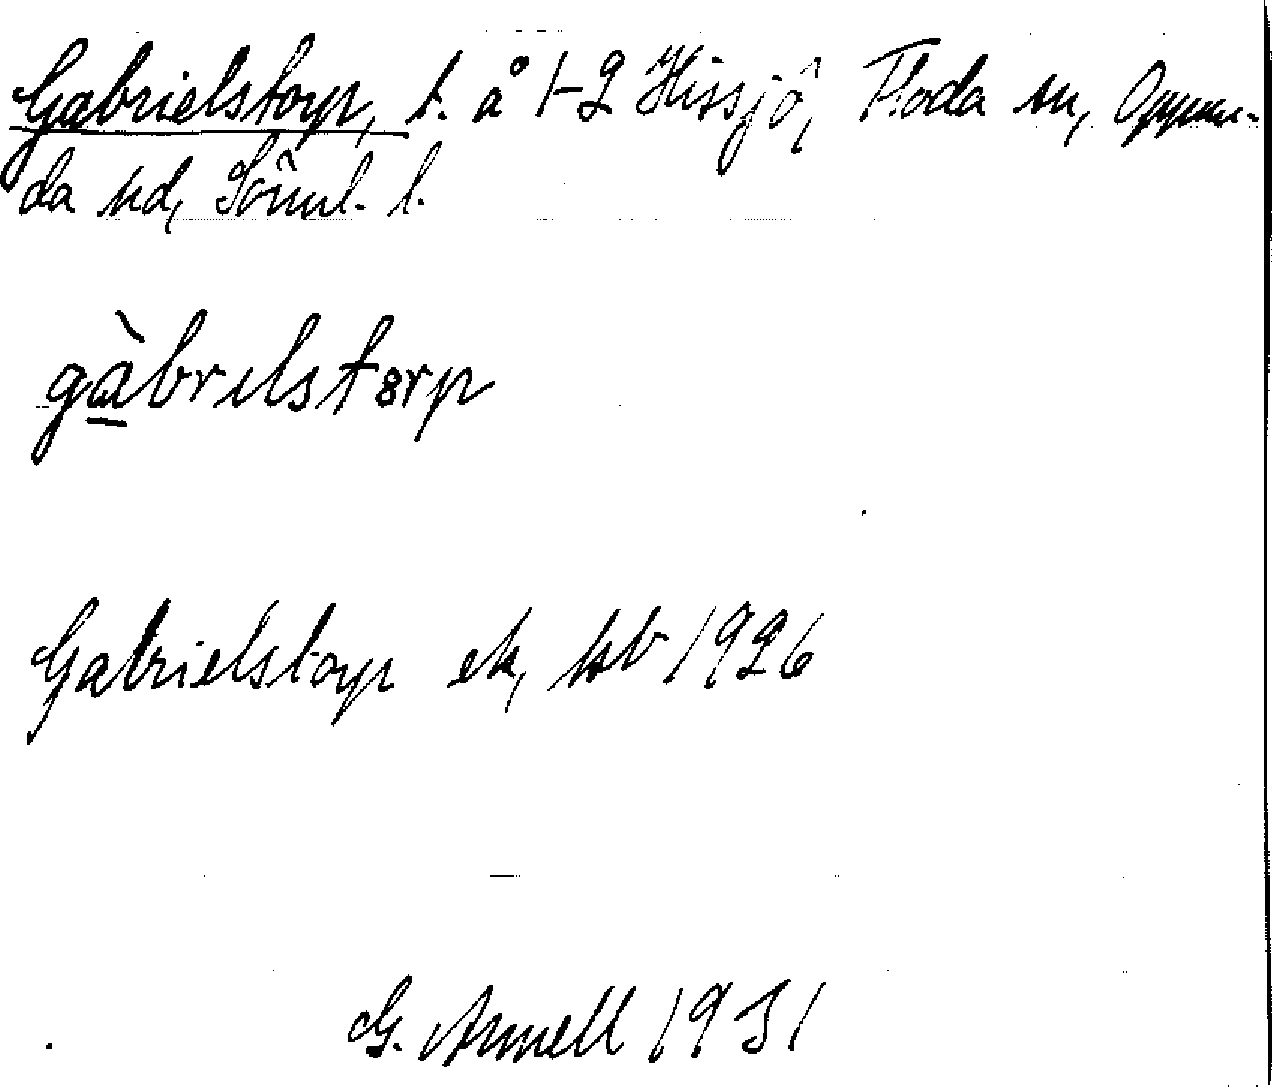 Gabrielstorp, t. å 1-2 Hissjö, Floda sn, Oppun-
da hd, Söml. l.
gàbrelstorp
Gabrielstorp ek, kb 1926
G. Annell 1931